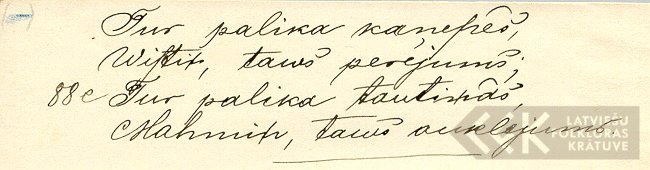 Tur palika kaņepēs,
Wistiņ, taws perējums;
88c Tur palika tautiņās,
Mahmiņ, taws auklējums.
LATVIEŠU
FOLKLORAS
KRĀTUVE